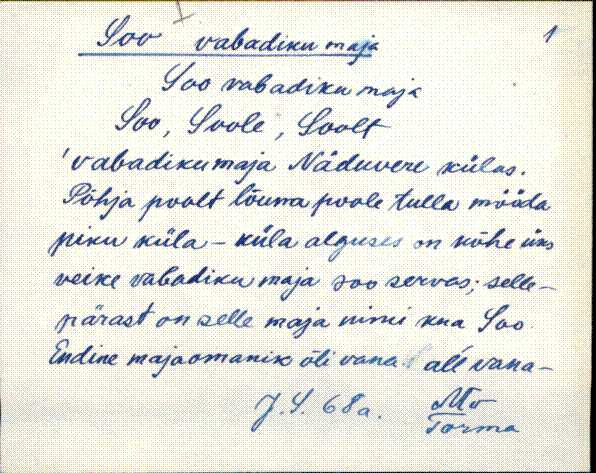 Soo vabadiku maja 1
Soo vabadiku maja
Soo, Soole, Soolt
'vabadikumaja Näduvere külas.
Põhja poolt lõuna poole tulla mööda
piku küla – küla alguses on kõhe üks
veike vabadiku maja soo servas; selle-
pärast on selle maja nimi kua Soo.
Endine majaomanik õli vana all vana-
J. S. 68 a. Mv
Torma